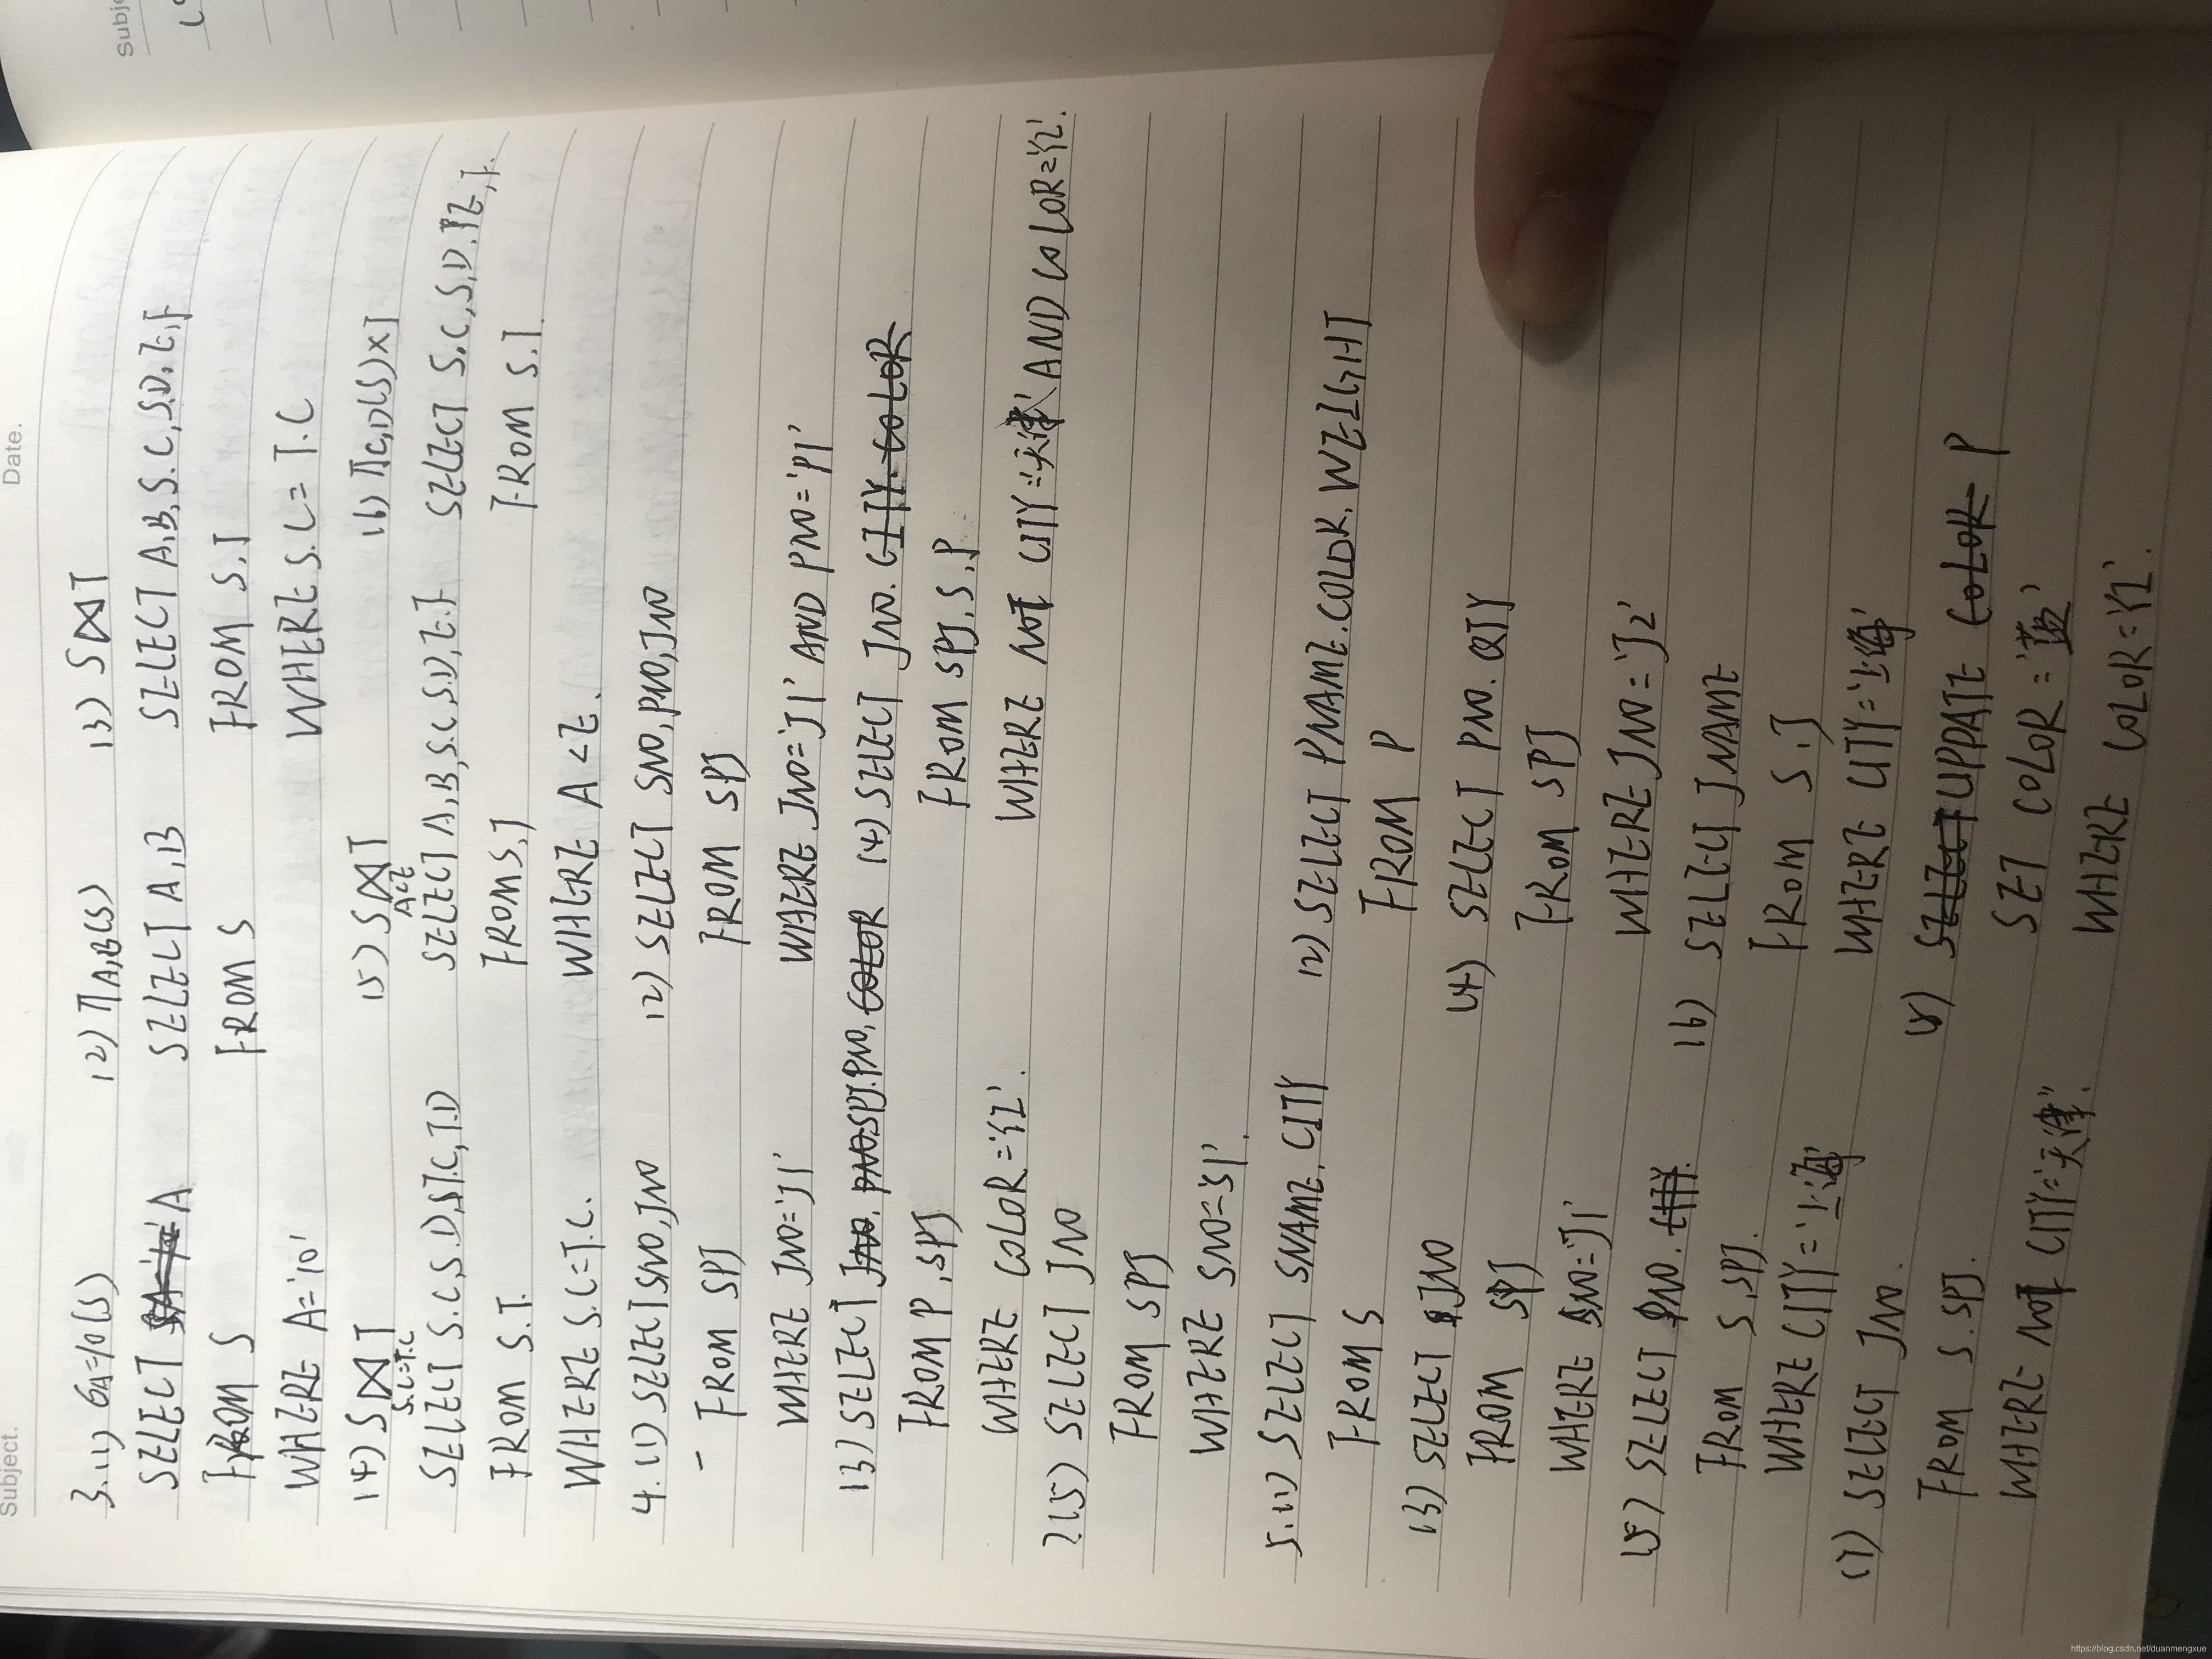 Subject.
Date.
3.(1) σA=10(S)
(2) ΠA,B(S)
(3) S⋈T
SELECT A
SELECT A,B
SELECT A,B,S.C,S.D,E,F
FROM S
FROM S
FROM S.T
WHERE A='10'
WHERE S.C=T.C
(4) S⋈T
S.C=T.C
(5) S⋈T
A<E
(6) ΠC,D(S)×T
SELECT S.C,S.D,ST.C,T.D
SELECT A,B,S.C,S.D,E,F
SELECT S.C,S.D,E,F.
FROM S.T.
FROM S,T
FROM S.T
WHERE S.C=T.C.
WHERE A<E.
4.(1) SELECT SNO,JNO
(2) SELECT SNO,PNO,JNO
FROM SPJ
FROM SPJ
WHERE JNO='J1'
WHERE JNO='J1' AND PNO='P1'
(3) SELECT SPJ.PNO,
(4) SELECT JNO.
FROM P,SPJ
FROM SPJ,S,P
WHERE COLOR='红'.
WHERE NOT CITY='天津' AND COLOR='红'.
(5) SELECT JNO
FROM SPJ
WHERE SNO='S1'.
5.(1) SELECT SNAME,CITY
(2) SELECT PNAME.COLOR.WEIGHT
FROM S
FROM P
(3) SELECT JNO
(4) SELECT PNO.QTY
FROM SPJ
FROM SPJ
WHERE SNO='J1'
WHERE JNO='J2'
(5) SELECT PNO.
(6) SELECT JNAME
FROM S,SPJ.
FROM S.J
WHERE CITY='上海'
WHERE CITY='上海'
(7) SELECT JNO.
(8) UPDATE P
FROM S.SPJ.
SET COLOR='蓝'
WHERE NOT CITY='天津'.
WHERE COLOR='红'.
https://blog.csdn.net/duanmengxue